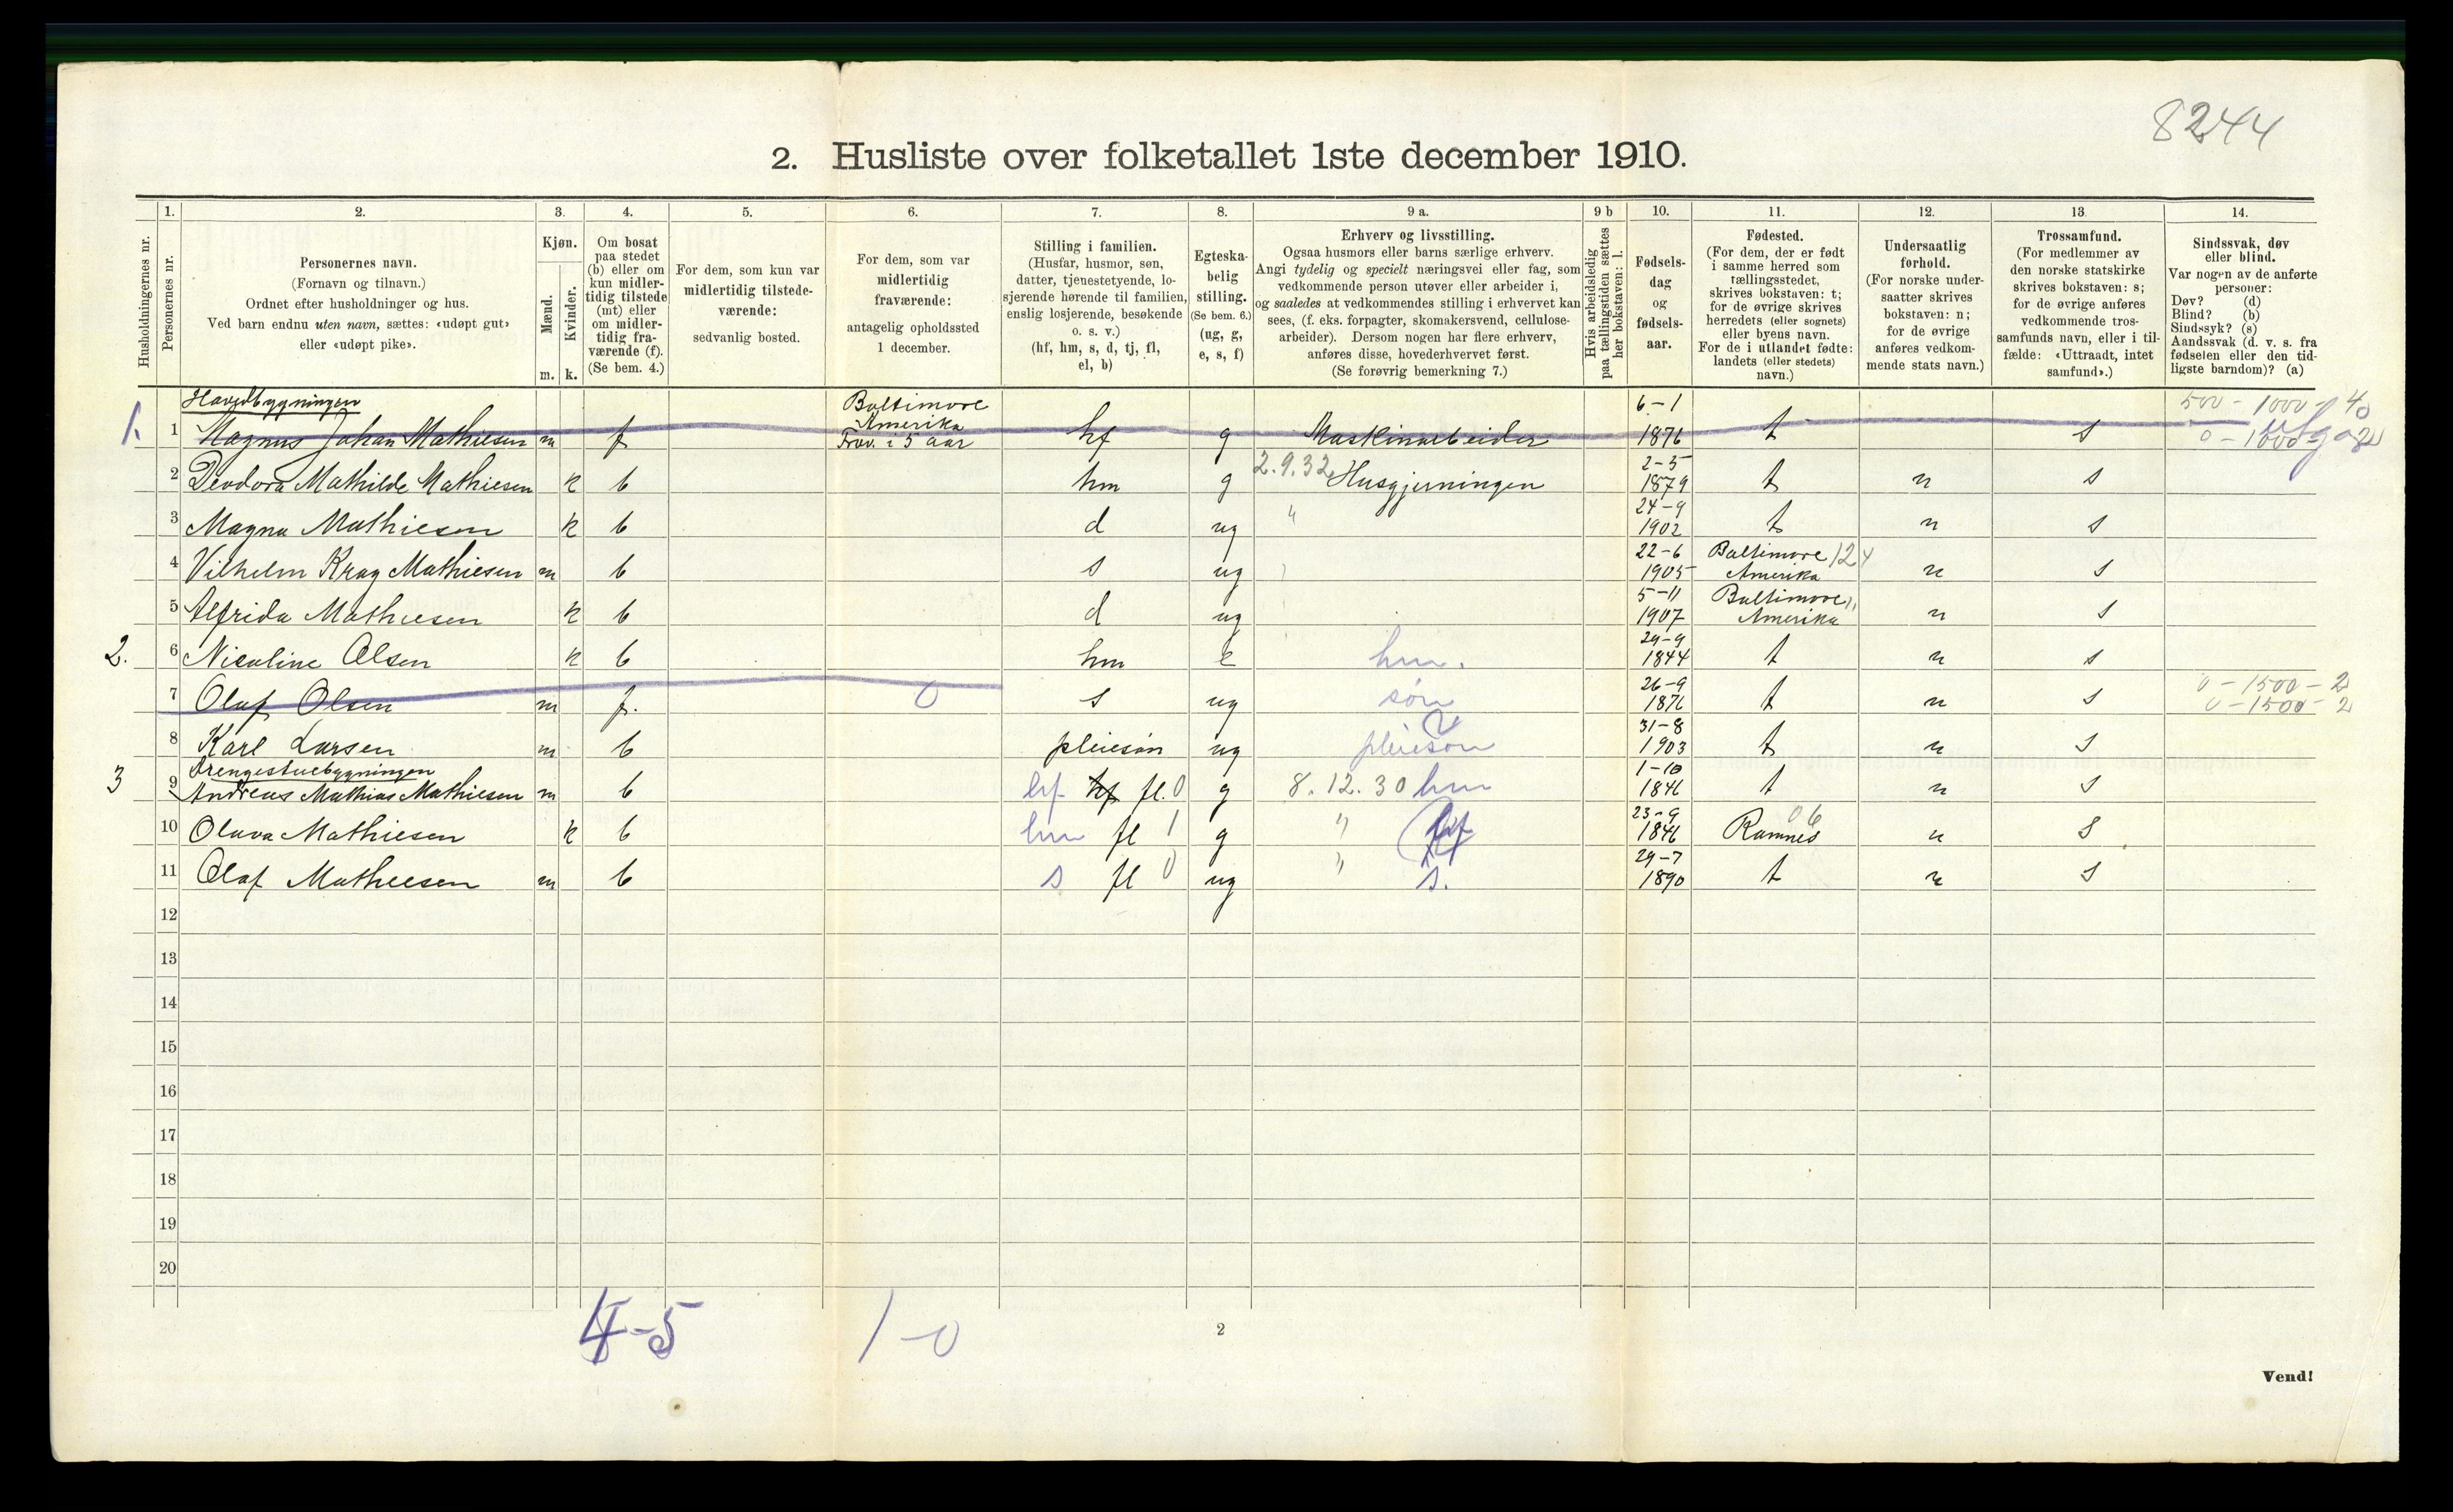 8244
2. Husliste over folketallet 1ste december 1910.
Husholdningernes nr.
1.
Personernes nr.
2.
Personernes navn.
(Fornavn og tilnavn.)
Ordnet efter husholdninger og hus.
Ved barn endnu uten navn, sættes: «udøpt gut»
eller «udøpt pike».
3.
Kjøn.
Mænd.
Kvinder.
m. k.
4.
Om bosat
paa stedet
(b) eller om
kun midler-
tidig tilstede
(mt) eller
om midler-
tidig fra-
værende (f).
(Se bem. 4.)
5.
For dem, som kun var
midlertidig tilstede-
værende:
sedvanlig bosted.
6.
For dem, som var
midlertidig
fraværende:
antagelig opholdssted
1 december.
7.
Stilling i familien.
(Husfar, husmor, søn,
datter, tjenestetyende, lo-
sjerende hørende til familien,
enslig losjerende, besøkende
o. s. v.)
(hf, hm, s, d, tj, fl,
el, b)
8.
Egteska-
belig
stilling.
(Se bem. 6.)
(ug, g,
e, s, f)
9 a.
Erhverv og livsstilling.
Ogsaa husmors eller barns særlige erhverv.
Angi tydelig og specielt næringsvei eller fag, som
vedkommende person utøver eller arbeider i,
og saaledes at vedkommendes stilling i erhvervet kan
sees, (f. eks. forpagter, skomakersvend, cellulose-
arbeider). Dersom nogen har flere erhverv,
anføres disse, hovederhvervet først.
(Se forøvrig bemerkning 7.)
9 b
Hvis arbeidsledig
paa tællingstiden sættes
her bokstaven: l.
10.
Fødsels-
dag
og
fødsels-
aar.
11.
Fødested.
(For dem, der er født
i samme herred som
tællingsstedet,
skrives bokstaven: t;
for de øvrige skrives
herredets (eller sognets)
eller byens navn.
For de i utlandet fødte:
landets (eller stedets)
navn.)
12.
Undersaatlig
forhold.
(For norske under-
saatter skrives
bokstaven: n;
for de øvrige
anføres vedkom-
mende stats navn.)
13.
Trossamfund.
(For medlemmer av
den norske statskirke
skrives bokstaven: s;
for de øvrige anføres
vedkommende tros-
samfunds navn, eller i til-
fælde: «Uttraadt, intet
samfund».)
14.
Sindssvak, døv
eller blind.
Var nogen av de anførte
personer:
Døv? (d)
Blind? (b)
Sindssyk? (s)
Aandssvak (d. v. s. fra
fødselen eller den tid-
ligste barndom)? (a)
Hovedbygningen
1. 1 Magnus Johan Mathiesen m f Baltimore Amerika Frav. i 5 aar hf g Maskinarbeider 6-1 1876 t s 500 - 1000 - 40
2 Deodora Mathilde Mathiesen k b hm g 2.9.32 Husgjerningen 2-5 1879 t n s
3 Magna Mathiesen k b d ug " 24-9 1902 t n s
4 Vilhelm Krag Mathiesen m b s ug 22-6 1905 Baltimore Amerika 124 n s
5 Alfrida Mathiesen k b d ug 5-11 1907 Baltimore Amerika " n s
2. 6 Nicoline Olsen k b hm e hm. 29-9 1844 t n s
7 Olaf Olsen m f. 0 s ug søn 26-9 1876 t n s 0 - 1500 - 2
0 - 1500 - 2
8 Karl Larsen m b pleiesøn ug pleiesøn 31-8 1903 t n s
Drengestuebygningen
3 9 Andreas Mathias Mathiesen m b hf hf fl. 0 g 8.12.30 hm 1-10 1846 t n s
10 Olava Mathiesen k b hm fl 1 g " hf 23-9 1846 Ramnes 06 n s
11 Olaf Mathiesen m b s fl 0 ug " s. 29-7 1890 t n s
12
13
14
15
16
17
18
19
20
4-5
1-0
2
Vend!